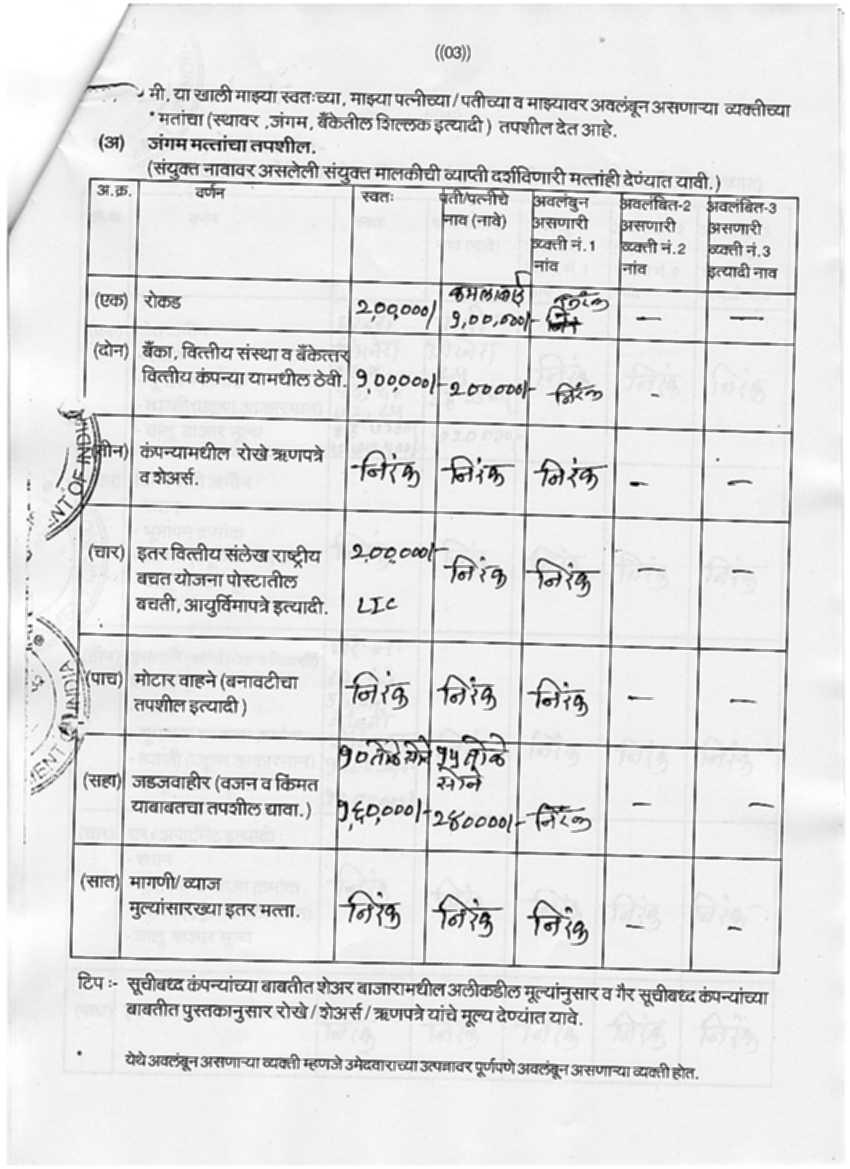 ((03))
मी, या खाली माझ्या स्वतःच्या, माझ्या पत्नीच्या/पतीच्या व माझ्यावर अवलंबून असणाऱ्या व्यक्तीच्या
मतांचा (स्थावर ,जंगम, बँकेतील शिल्लक इत्यादी ) तपशील देत आहे.
(अ) जंगम मत्तांचा तपशील.
(संयुक्त नावावर असलेली संयुक्त मालकीची व्याप्ती दर्शविणारी मत्तांही देण्यात यावी.)
अ.क्र. वर्णन स्वतः पती/पत्नीचे अवलंबुन अवलंबित-2 अवलंबित-3
नाव (नावे) असणारी असणारी असणारी
व्यक्ती नं.1 व्यक्ती नं.2 व्यक्ती नं.3
नांव नांव इत्यादी नाव
कमलाबाई निरंक
(एक) रोकड 2,00,000/ १,००,०००/- — —
(दोन) बँका, वित्तीय संस्था व बँकेत्तर
वित्तीय कंपन्या यामधील ठेवी. १,००,०००/- 2०००००/- निरंक -
(तीन) कंपन्यामधील रोखे ऋणपत्रे
व शेअर्स. निरंक निरंक निरंक - -
(चार) इतर वित्तीय संलेख राष्ट्रीय 2,00,000/-
बचत योजना पोस्टातील निरंक निरंक — —
बचती, आयुर्विमापत्रे इत्यादी. LIC
(पाच) मोटार वाहने (बनावटीचा निरंक निरंक निरंक — —
तपशील इत्यादी )
१० तोळे सोने १५ तोळे
(सहा) जडजवाहीर (वजन व किंमत सोने — —
याबाबतचा तपशील द्यावा.) १,६०,०००/- 2४००००/- निरंक
(सात) मागणी/ व्याज
मुल्यांसारख्या इतर मत्ता. निरंक निरंक निरंक - -
टिप :- सूचीबध्द कंपन्यांच्या बाबतीत शेअर बाजारामधील अलीकडील मूल्यांनुसार व गैर सूचीबध्द कंपन्यांच्या
बाबतीत पुस्तकानुसार रोखे / शेअर्स / ऋणपत्रे यांचे मूल्य देण्यांत यावे.
• येथे अवलंबून असणाऱ्या व्यक्ती म्हणजे उमेदवाराच्या उत्पन्नावर पूर्णपणे अवलंबून असणाऱ्या व्यक्ती होत.